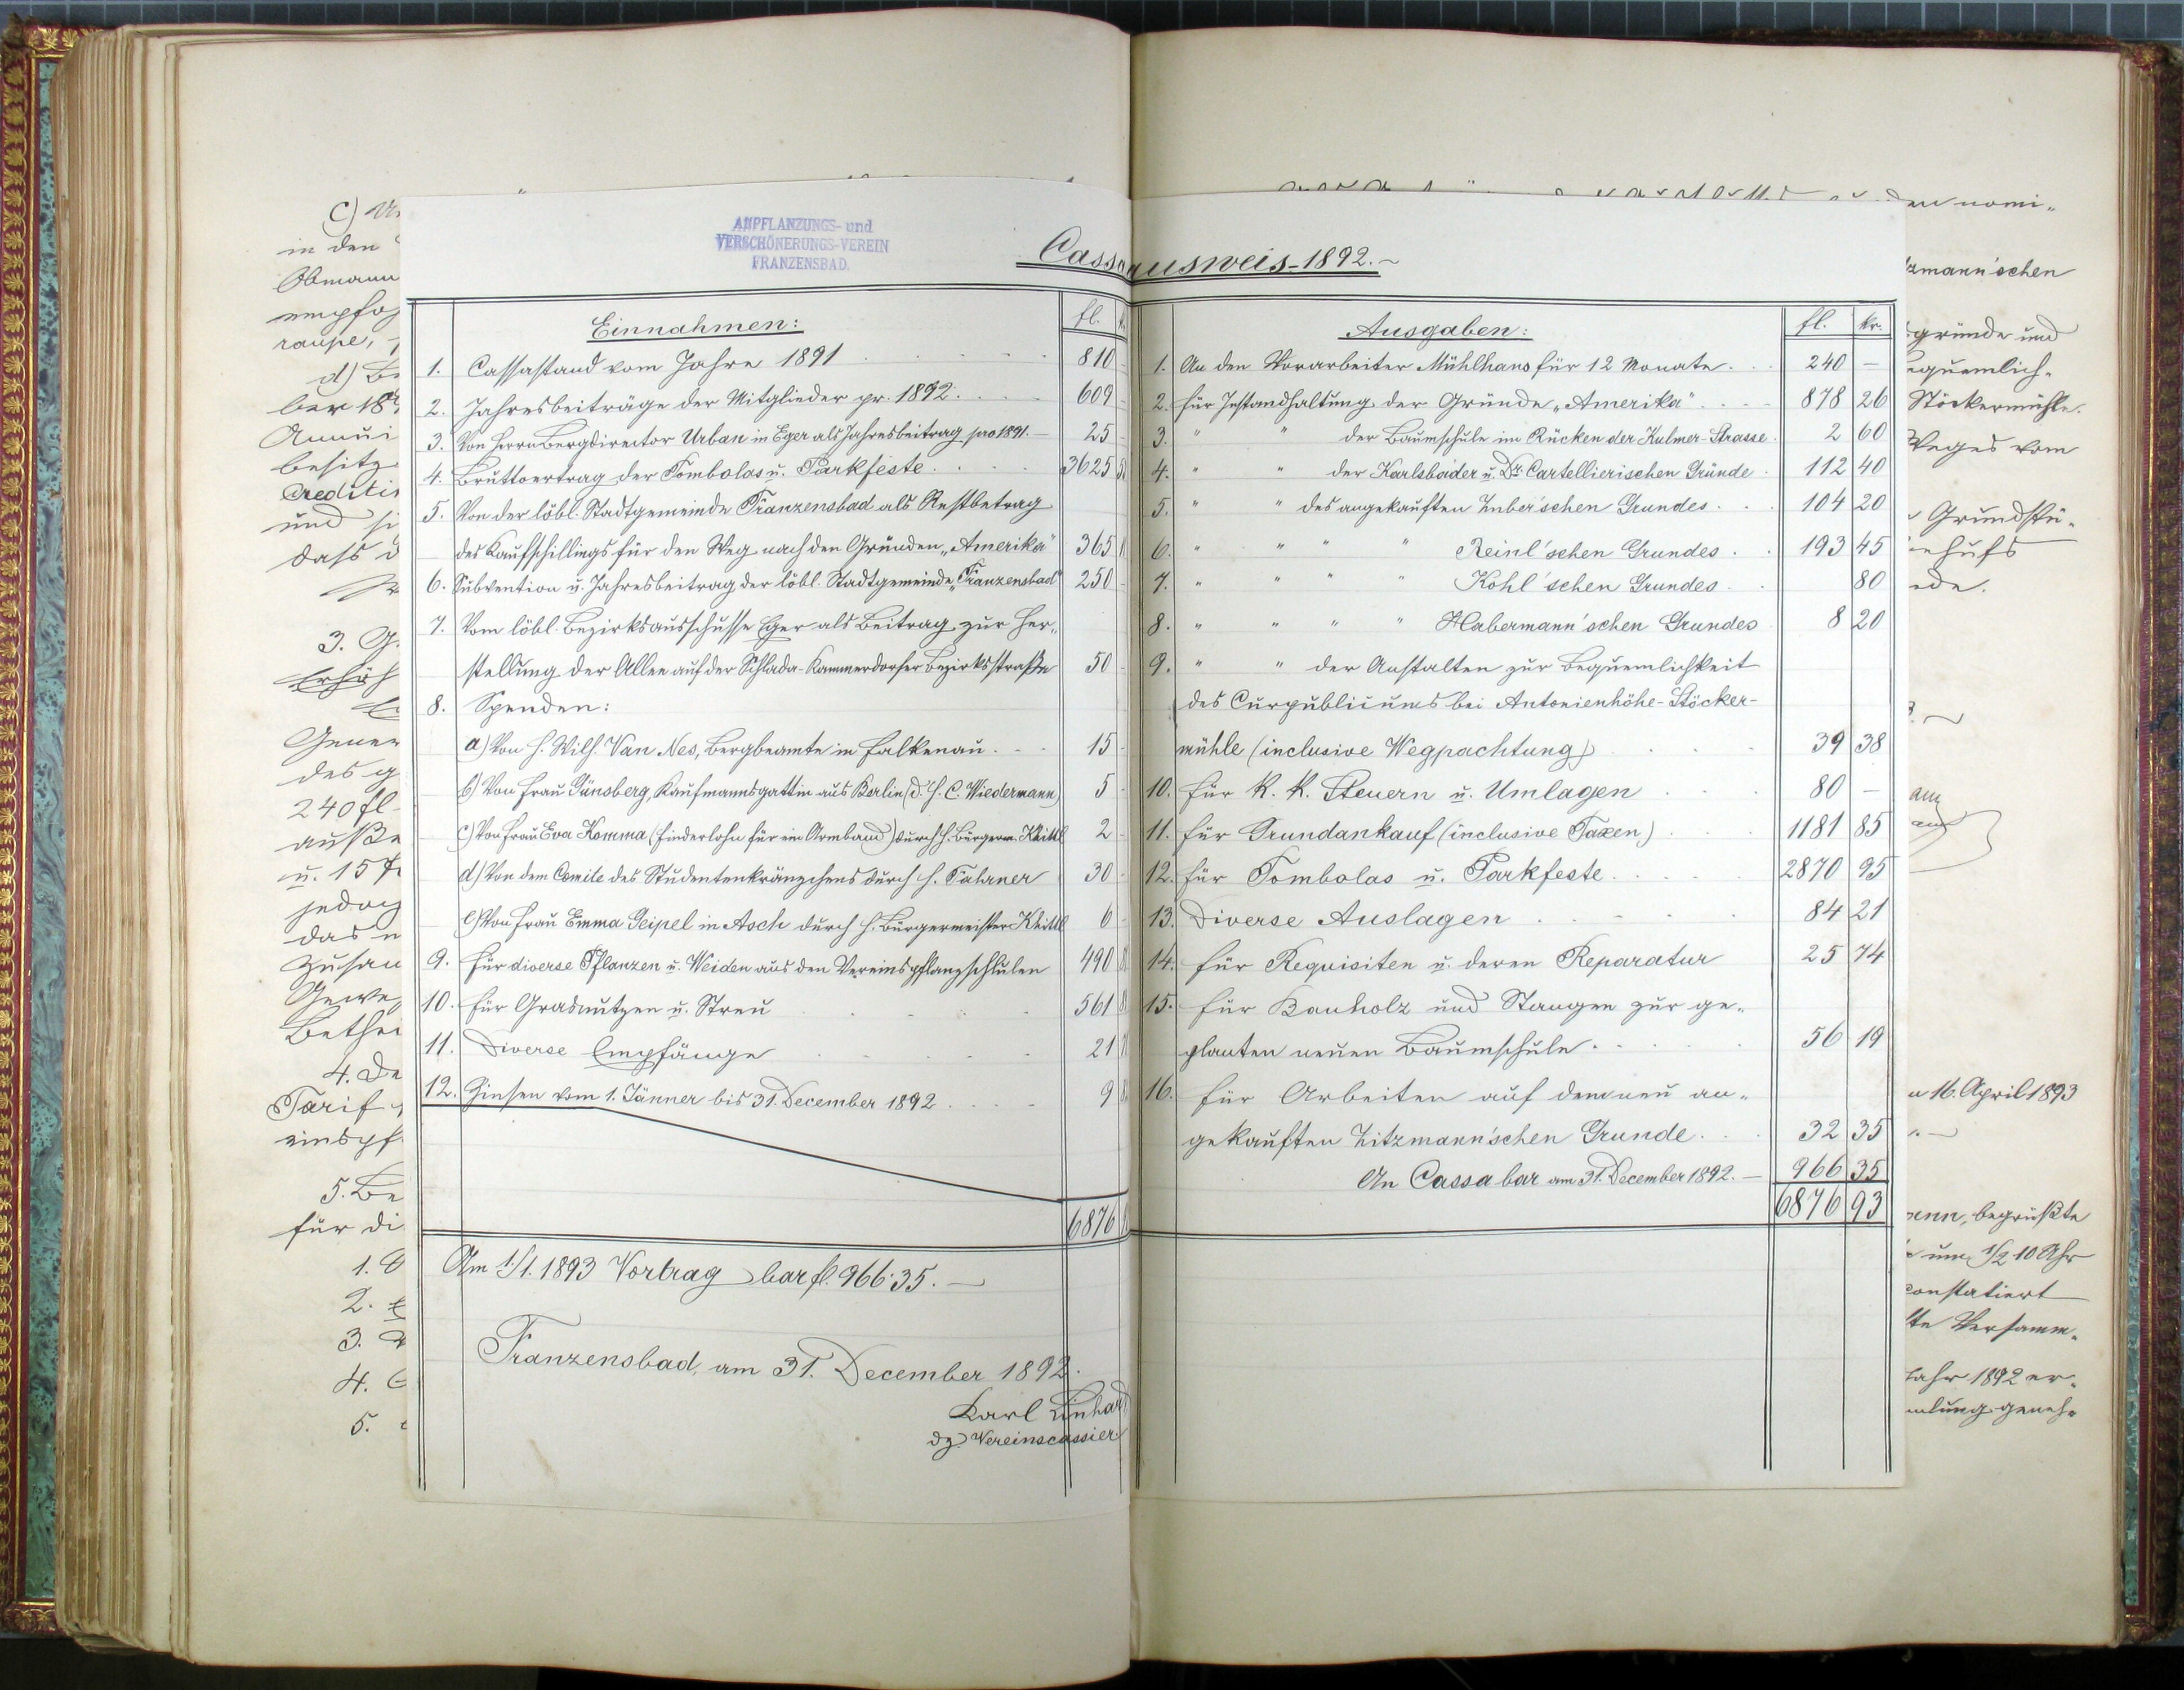 ANPFLANZUNGS- und
VERSCHÖNERUNGS-VEREIN
FRANZENSBAD.
Cassaausweis-1892.
Einnahmen: fl.
1. Cassastand vom Jahre 1891 810
2. Jahresbeiträge der Mitglieder pr. 1892. 609
3. Von Herrn Bergdirector Urban in Eger als Jahresbeitrag pro 1891. 25
4. Bruttoertrag der Tombolas u. Parkfeste 3625
5. Von der löbl. Stadtgemeinde Franzensbad als Restbetrag
des Kaufschillings für den Weg nach den Gründen „Amerika" 365
6. Subvention u. Jahresbeitrag der löbl. Stadtgemeinde „Franzensbad" 250
7. Vom löbl. Bezirksausschusse Eger als Beitrag zur Her-
stellung der Allee auf der Schlada-Kammerdorfer Bezirksstraße 50
8. Spenden:
a) Von H. Wilh. Van Nes, Bergbeamte in Falkenau 15
b) Von Frau Günsberg, Kaufmannsgattin aus Berlin (d. H. C. Wiedermann) 5
c) Von Frau Eva Komma (Finderlohn für ein Armband) durch H. Bürgerm. 2
d) Von dem Comite des Studentenkränzchens durch H. 30
e) Von Frau Emma Geipel in Asch durch H. Bürgermeister 6
9. Für diverse Pflanzen u. Weiden aus den Vereinspflanzschulen 490
10. Für Grasnutzen u. Streu 561
11. Diverse Empfänge 21
12. Zinsen vom 1. Jänner bis 31. December 1892 9
6876
Am 1/1. 1893 Vortrag bar fl. 966·35.
Franzensbad, am 31. December 1892.
Karl Linhard
dz. Vereinscassier
Ausgaben: fl. kr.
1. An den Vorarbeiter Mühlhans für 12 Monate. 240 —
2. Für Instandhaltung der Gründe „Amerika" 878 26
3. " " der Baumschule im Rücken der Kulmer-Strasse 2 60
4. " " der Karlsbader u. Dr. Cartellierischen Gründe 112 40
5. " " des angekauften Huber'schen Grundes 104 20
6. " " " " Reinl'schen Grundes 193 45
7. " " " " Kohl'schen Grundes 80
8. " " " " Habermann'schen Grundes 8 20
9. " " der Anstalten zur Bequemlichkeit
des Curpublicums bei Antonienhöhe-Stöcker-
mühle (inclusive Wegpachtung) 39 38
10. Für K. K. Steuern u. Umlagen 80 —
11. Für Grundankauf (inclusive Taxen) 1181 85
12. Für Tombolas u. Parkfeste 2870 95
13. Diverse Auslagen 84 21
14. Für Requisiten u. deren Reparatur 25 74
15. Für Bauholz und Stangen zur ge-
planten neuen Baumschule 56 19
16. Für Arbeiten auf dem neu an-
gekauften Litzmann'schen Grunde 32 35
An Cassa bar am 31. December 1892. 966 35
6876 93
c)
in den
Obmann
raupe,
d)
besitz
und
dass
3.
des
240 fl
u. 15
jedoch
das
4. De
Tarif
5. Be
für di
1.
2.
3.
4.
5.
den nomi-
zmann'schen
gründe und
equemlich-
Stöckermühle.
Weges vom
Grundstü-
behufs
am 16. April 1893
begrüßte
um ½10 Uhr
constatiert
te Versamm-
Jahr 1892 er-
mlung geneh-